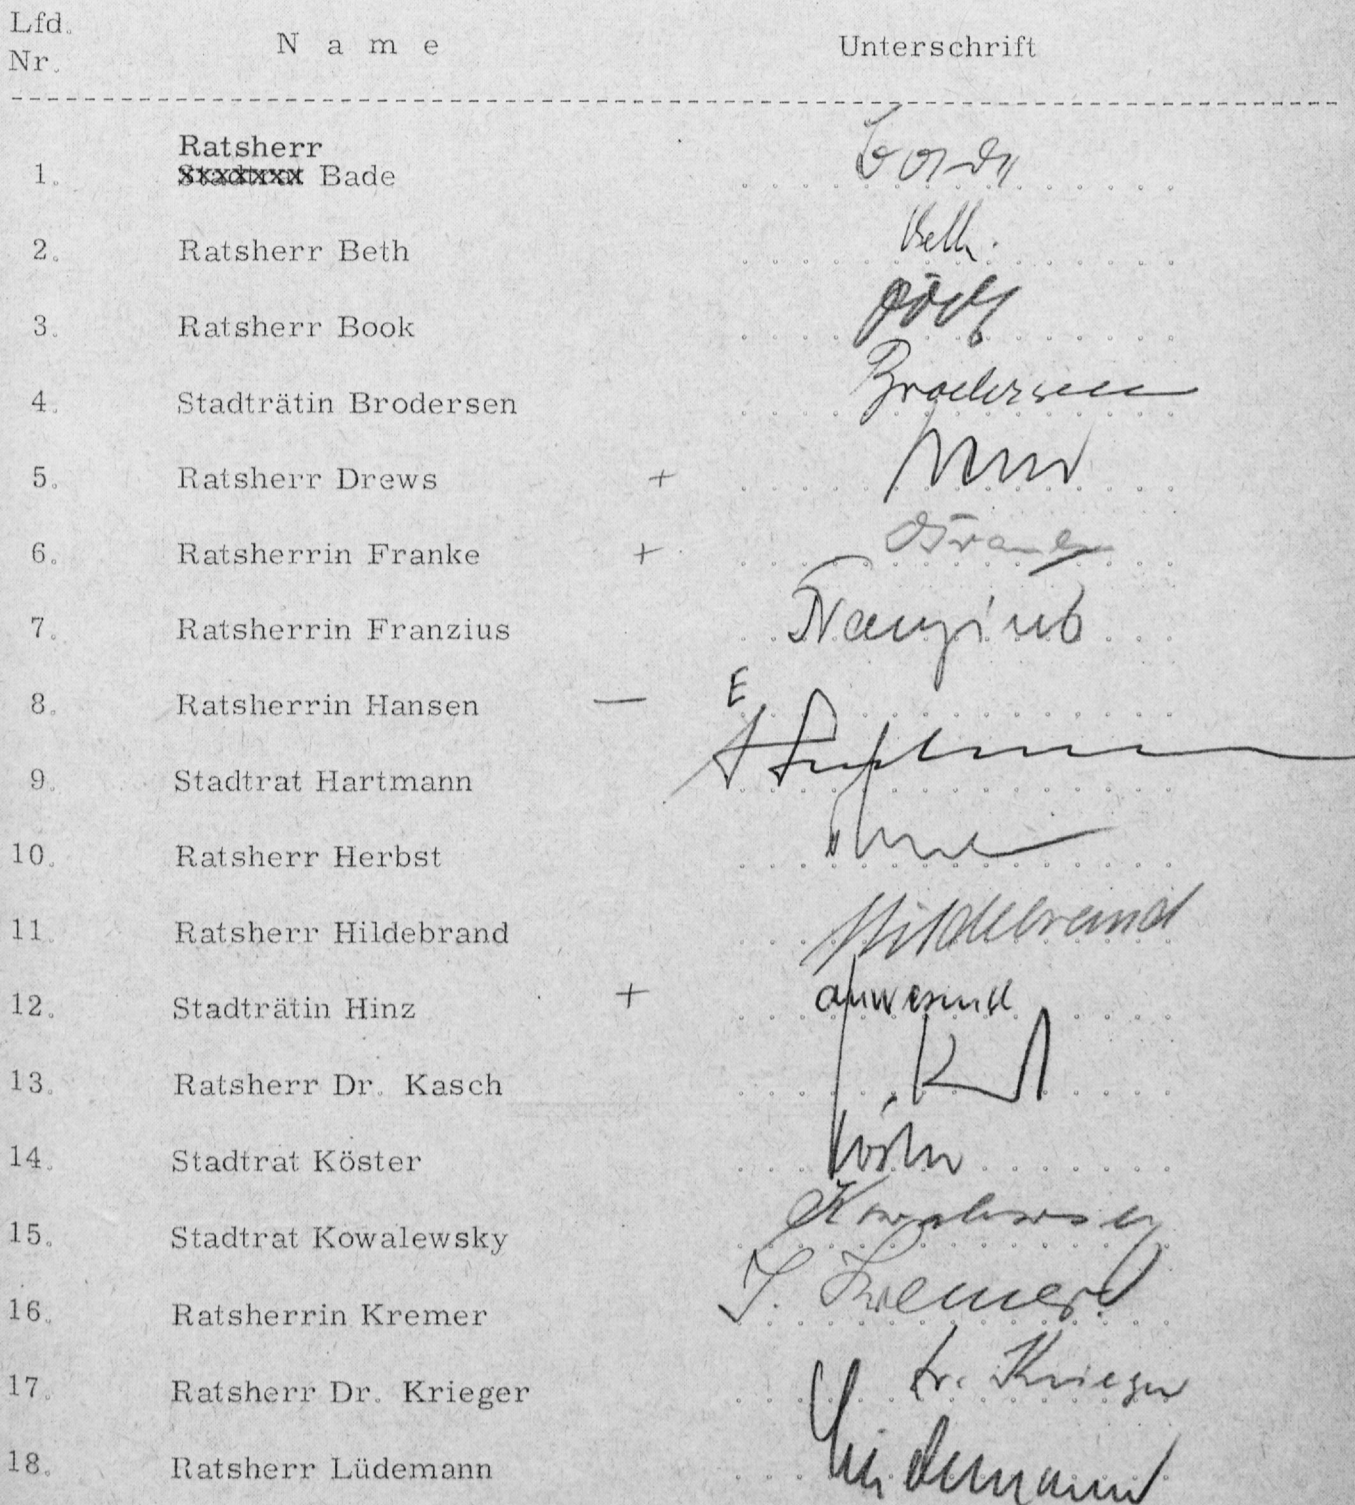 Lfd. Nr. N a m e Unterschrift
Ratsherr
1. Bade
2. Ratsherr Beth Beth.
3. Ratsherr Book
4. Stadträtin Brodersen Brodersen
5. Ratsherr Drews +
6. Ratsherrin Franke +
7. Ratsherrin Franzius Franzius
8. Ratsherrin Hansen — E
9. Stadtrat Hartmann
10. Ratsherr Herbst
11. Ratsherr Hildebrand Hildebrand
12. Stadträtin Hinz + anwesend
13. Ratsherr Dr. Kasch
14. Stadtrat Köster Köster
15. Stadtrat Kowalewsky Kowalewsky
16. Ratsherrin Kremer I. Kremer
17. Ratsherr Dr. Krieger Dr. Krieger
18. Ratsherr Lüdemann Lüdemann